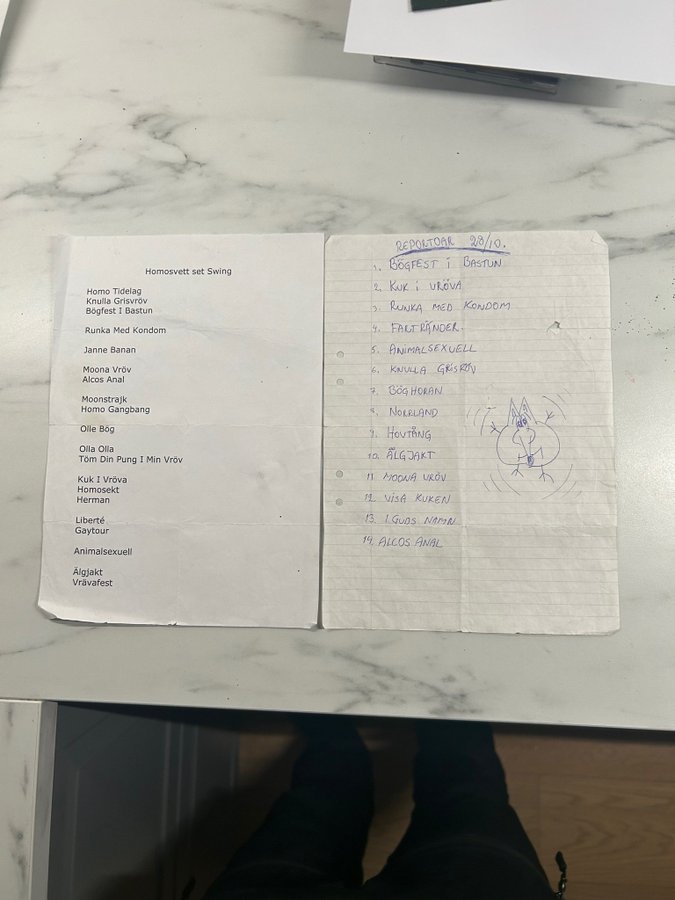 Homosvett set Swing
Homo Tidelag
Knulla Grisvröv
Bögfest I Bastun
Runka Med Kondom
Janne Banan
Moona Vröv
Alcos Anal
Moonstrajk
Homo Gangbang
Olle Bög
Olla Olla
Töm Din Pung I Min Vröv
Kuk I Vröva
Homosekt
Herman
Liberté
Gaytour
Animalsexuell
Älgjakt
Vrävafest
REPORTOAR 28/10.
1. BÖGFEST I BASTUN
2. KUK I VRÖVA
3. RUNKA MED KONDOM
4. FARTRÄNDER.
5. ANIMALSEXUELL
6. KNULLA GRISRÖV
7. BÖGHORAN
8. NORRLAND
9. HOVTÅNG
10. ÄLGJAKT
11. MOONA VRÖV
12. VISA KUKEN
13. I GUDS NAMN
14. ALCOS ANAL